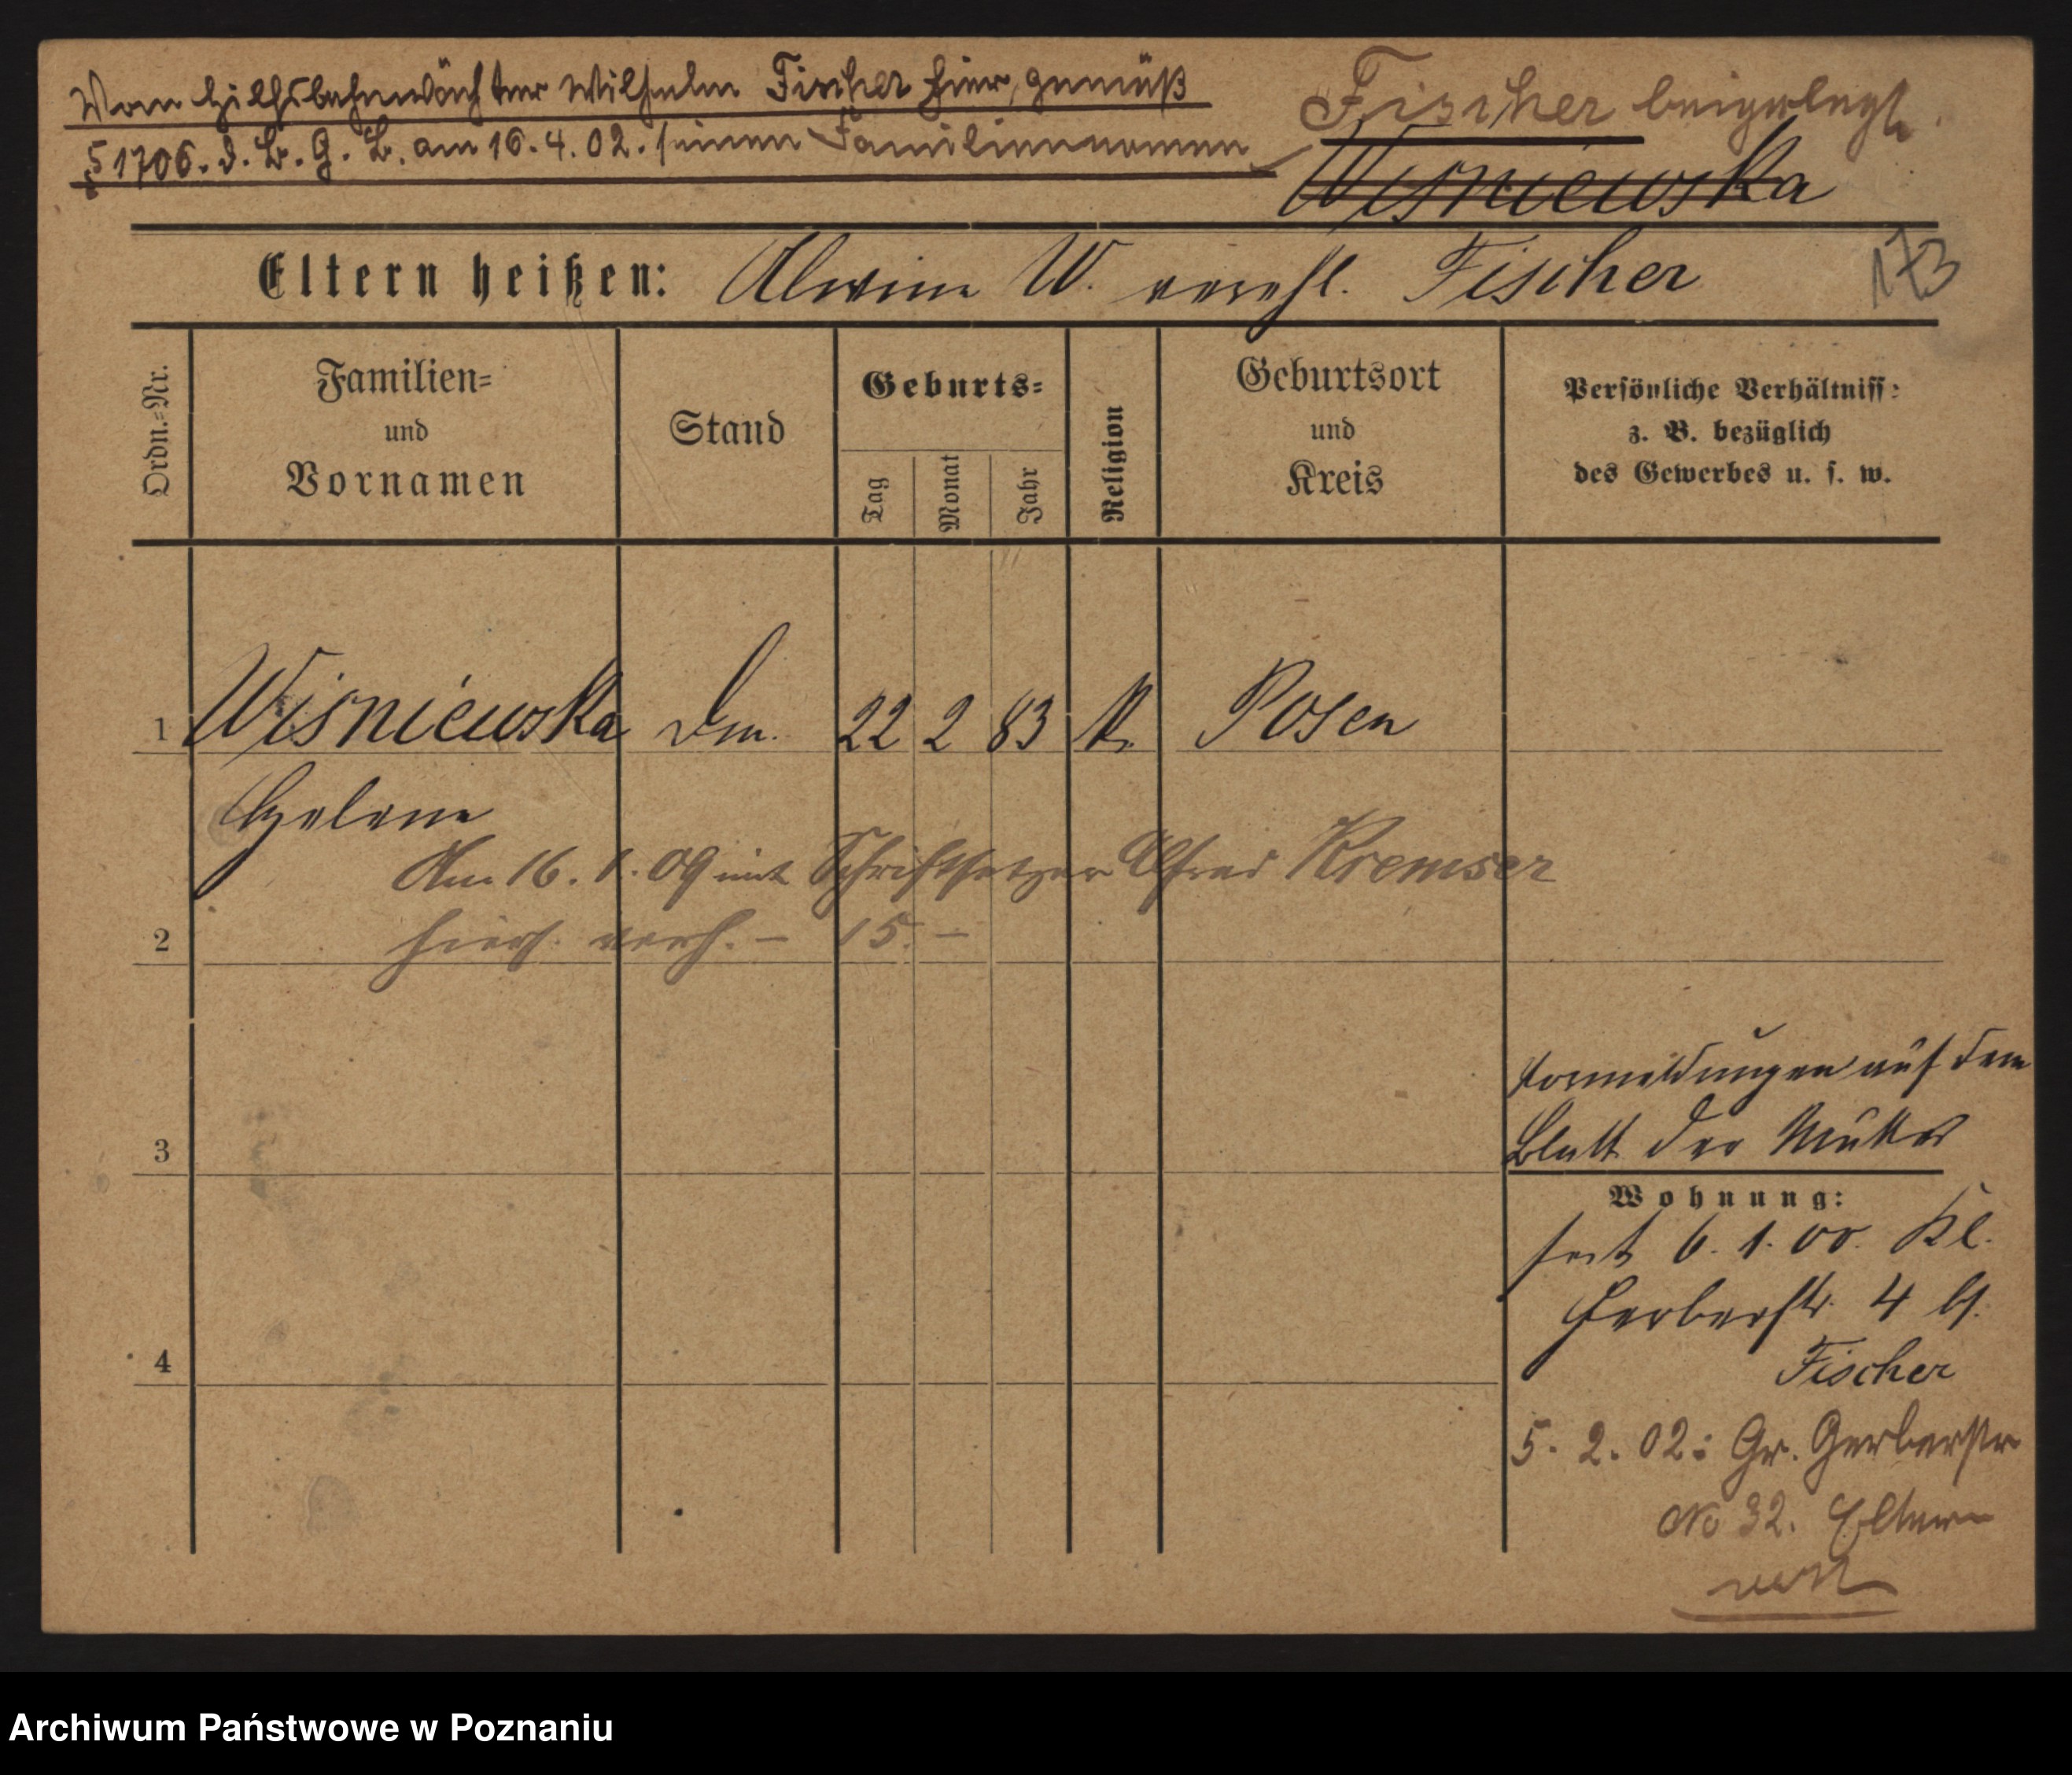 Vom Hilfsbahnwächter Wilhelm Fischer hier, gemäß
§ 1706. d. B. G. B. am 16. 4. 02. seinen Familiennamen
Fischer beigelegt.
Wisniewska
Eltern heißen: Alwine W. verehl. Fischer
173
Ordn.=Nr.
Familien=
und
Vornamen
Stand
Geburts=
Tag
Monat
Jahr
Religion
Geburtsort
und
Kreis
Persönliche Verhältniss:
z. B. bezüglich
des Gewerbes u. s. w.
1 Wisniewska 22 2 83 K. Posen
Helene
Am 16. 1. 09 mit Schriftsetzer Alfred Kremser
2 hiers. verh. – 15. –
3
Vormeldungen auf dem
Blatt der Mutter
Wohnung:
seit 6. 1. 00. Kl.
Gerberstr. 4 b.
4
Fischer
5. 2. 02: Gr. Gerberstr
No 32. Eltern
Archiwum Państwowe w Poznaniu